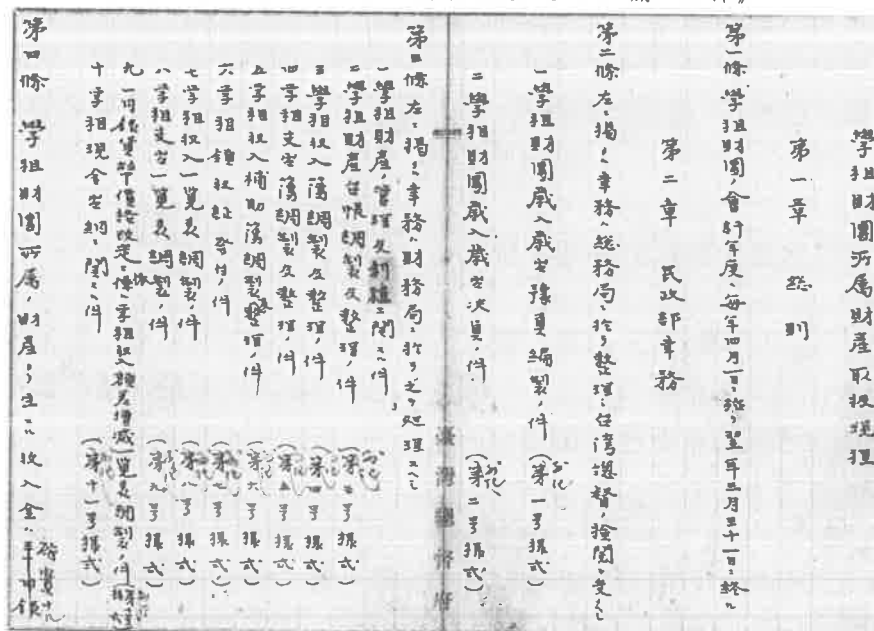 學租財團所屬財產取扱規程
第一章 總則
第一條 學租財團ノ會計年度ハ每年四月一日ニ始マリ翌年三月三十一日ニ終ル
第二章 民政部事務
第二條 左ニ揭クル事務ハ總務局ニ於テ整理シ台灣總督ノ檢閱ヲ受クヘシ
一 學租財團歲入歲出豫算編製ノ件 (第一号樣式)
二 學租財團歲入歲出決算ノ件 (第二号樣式)
臺灣總督府
第三條 左ニ揭クル事務ハ財務局ニ於テ之ヲ処理スヘシ
一 學租財產ノ管理及
二 學租財產台帳調製及整理ノ件 (第三号樣式)
三 學租收入簿調製及整理ノ件 (第四号樣式)
四 學租支出簿調製及整理ノ件 (第五号樣式)
五 學租收入補助簿調製整理ノ件 (第六号樣式)
六 學租領收証発付ノ件 (第七号樣式)
七 學租收入一覽表調製ノ件 (第八号樣式)
八 學租支出一覽表調製ノ件 (第九号樣式)
九
十 學租現金出納ニ關スル件 (第十一号樣式)
第四條 學租財團所屬ノ財產ヨリ生スル收入金ハ